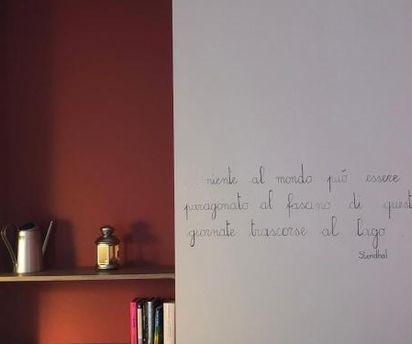 niente al mondo può essere
paragonato al fascino di quest
giornate trascorse al lago
Stendhal